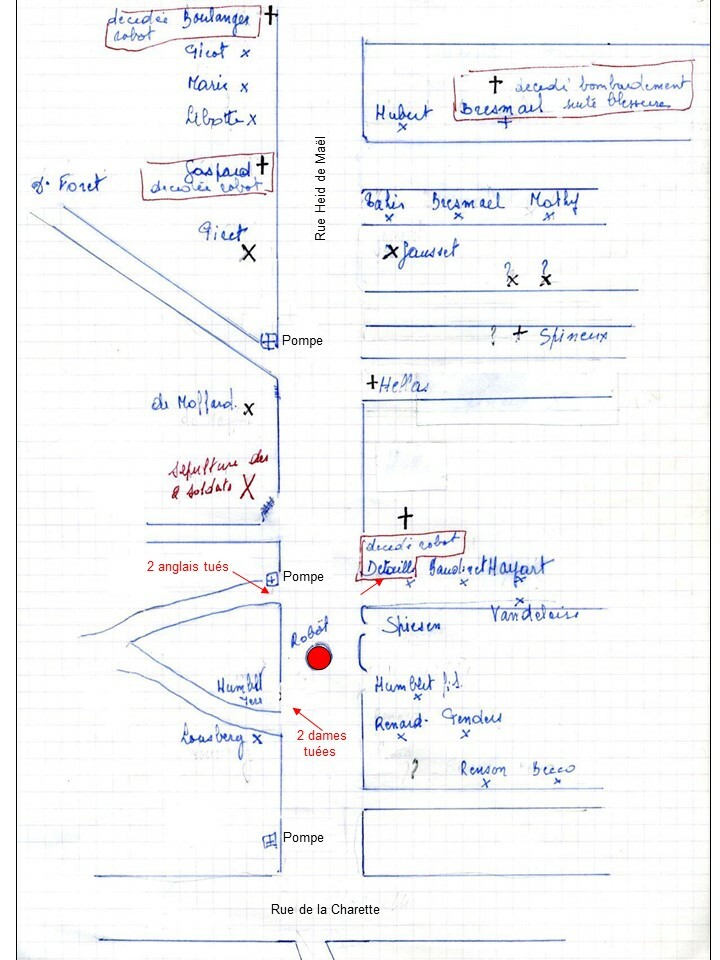 decedée Boulanger
robot
Gicot x
Marie x
Libotte x
Hubert
x
decedé bombardement
Bresmael suite blessures
Rue Heid de Maël
Gaspard
decedée robot
d. Foret
Bresmael
x
Mathy
x
Giret
x
x Jausset
? ?
x x
Pompe
? Spineux
Hellas
de Moffard. x
sépulture des
2 soldats X
decedé robot
2 anglais tués
Pompe
Detaille
x
Baudinet
x
Hayart
x
x
Vandelaire
Robot
Spiesen
Humblet
Humblet fils.
x
Renard.
x
Genders
x
Lousberg x
2 dames
tuées
?
Renson
x
Becco
x
Pompe
Rue de la Charette